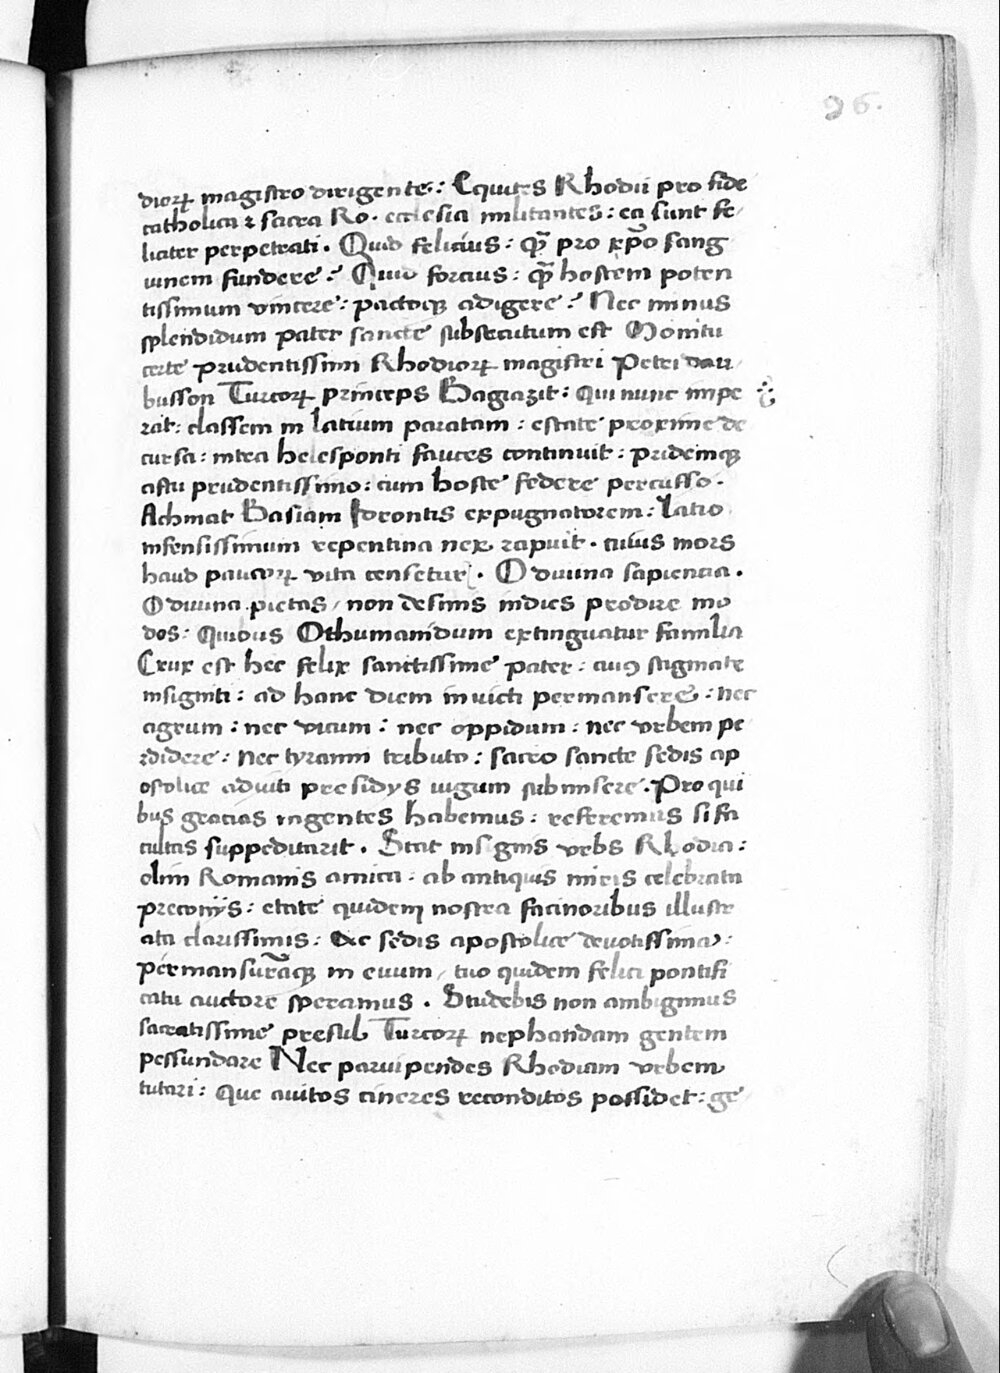 96.
dioꝝ magistro dirigente: Equites Rhodii pro fide
catholica ⁊ sacra Ro. ecclesia militantes: ea sunt fe-
liciter perpetrati. Quid felicius: qm̄ pro xp̄o sang
uinem fundere? Quid forcius: qm̄ hostem poten
tissimum vincere: pactoqꝫ adigere? Nec minus
splendidum pater sancte subsecutum est Monitu
certe prudentissimi Rhodioꝝ magistri Petri dau-
busson Turcoꝝ princeps Bagiazit: Qui nunc impe
rat: classem in latium paratam: estate proxime de
cursa: intra helesponti fauces continuit: pridemqꝫ
astu prudentissimo: cum hoste federe percusso.
Achmat Basiam Idrontis expugnatorem: Latio
infensissimum repentina nex rapuit. cuius mors
haud paucoꝝ vita censetur. O diuina sapientia.
O diuina pietas, non desinis indies prodire mo
dos: quibus Othumanidum extinguatur familia
Crux est hec felix sanctissime pater: cuiꝰ stigmate
insigniti: ad hanc diem inuicti permansere: nec
agrum: nec vicum: nec oppidum: nec vrbem pe
rdidere: nec tyranni tributo: sacro sancte sedis ap
ostolice adiuti presidys iugum submisere. Pro qui
bus gracias ingentes habemus: referemus si fa
cultas suppeditarit. Stat insignis vrbs Rhodia:
olim Romanis amica: ab antiquis miris celebrata
preconijs: etate quidem nostra facinoribus illustr
ata clarissimis: Ac sedis apostolice deuotissima:
permansuraqꝫ in euum, tuo quidem felici pontifi
catu auctore speramus. Studebis non ambigimus
sacratissime presul Turcoꝝ nephandam gentem
pessundare Nec paruipendes Rhodiam vrbem
tutari: Que auitos cineres reconditos possidet: ge-